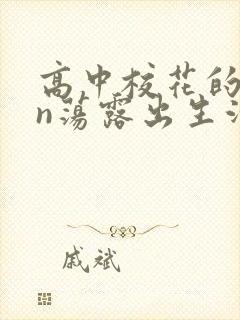 高中校花的
n荡露出生活
戚斌